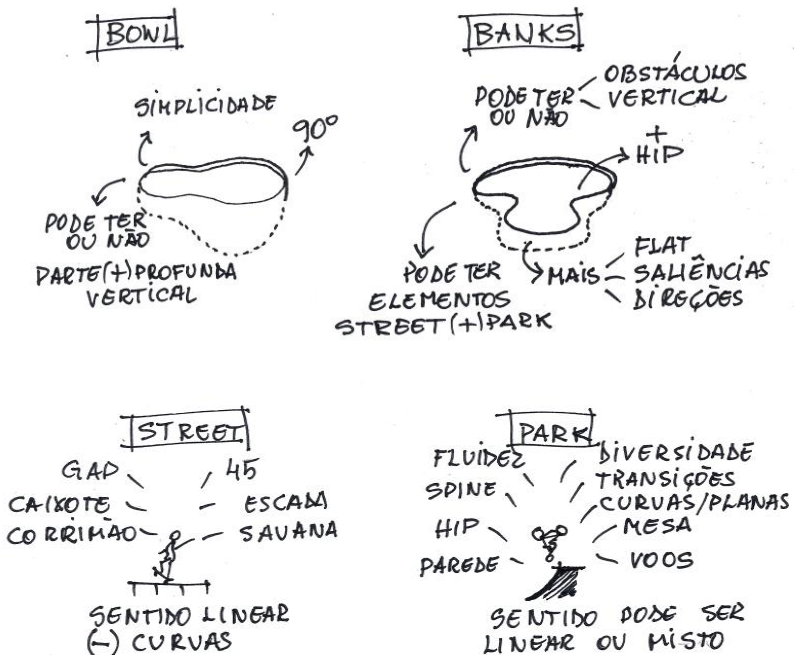 BOWL
SIMPLICIDADE
90º
PODE TER
OU NÃO
PARTE(+)PROFUNDA
VERTICAL
BANKS
PODE TER
OU NÃO
OBSTÁCULOS
VERTICAL
+
HIP
PODE TER
ELEMENTOS
STREET(+)PARK
MAIS
FLAT
SALIÊNCIAS
DIREÇÕES
STREET
GAP
CAIXOTE
CORRIMÃO
45
ESCADA
SAVANA
SENTIDO LINEAR
(-) CURVAS
PARK
FLUIDEZ
SPINE
HIP
PAREDE
DIVERSIDADE
TRANSIÇÕES
CURVAS/PLANAS
MESA
VOOS
SENTIDO PODE SER
LINEAR OU MISTO